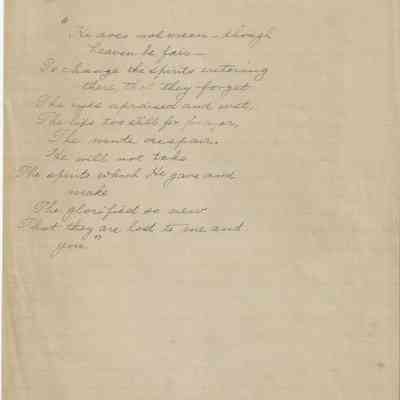 "He does not mean - though
heaven be fair -
To change the spirits entering
there, that they forget
The eyes upraised and wet,
The lips too still for prayer,
The mute despair.
He will not take
The spirits which He gave and
make
The glorified so new
That they are lost to me and
you."